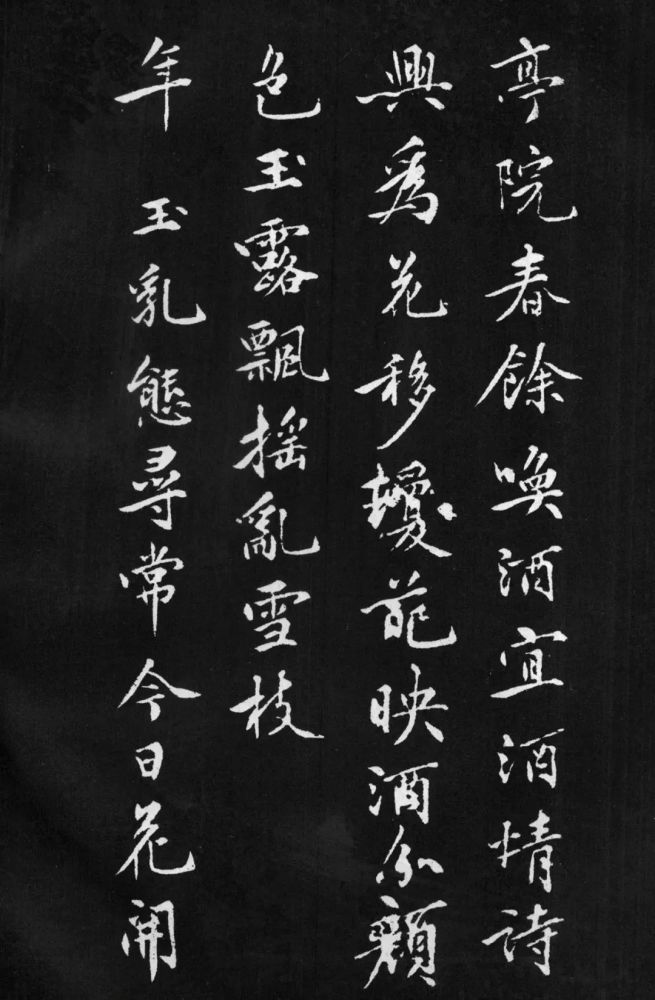 亭院春餘喚酒宜酒情詩
興為花移擾葩映酒分顏
色玉露飄搖亂雪枝
年 玉乳態尋常今日花開